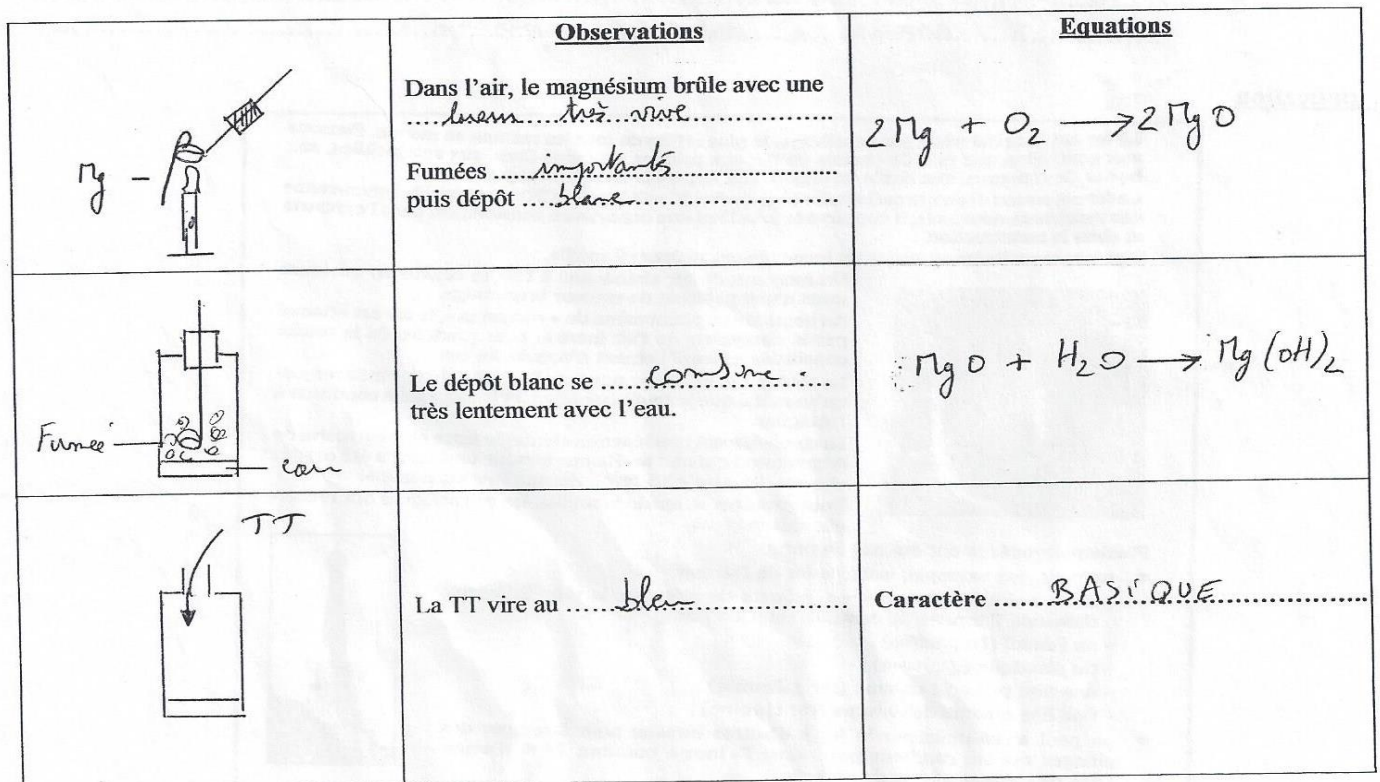 Observations
Equations
Dans l'air, le magnésium brûle avec une
lueur très vive
Fumées importants
puis dépôt blanc
Mg
2 Mg + O₂ → 2 MgO
Le dépôt blanc se combine.
très lentement avec l'eau.
Fumeé
eau
MgO + H₂O → Mg(OH)₂
TT
La TT vire au bleu
Caractère BASiQUE